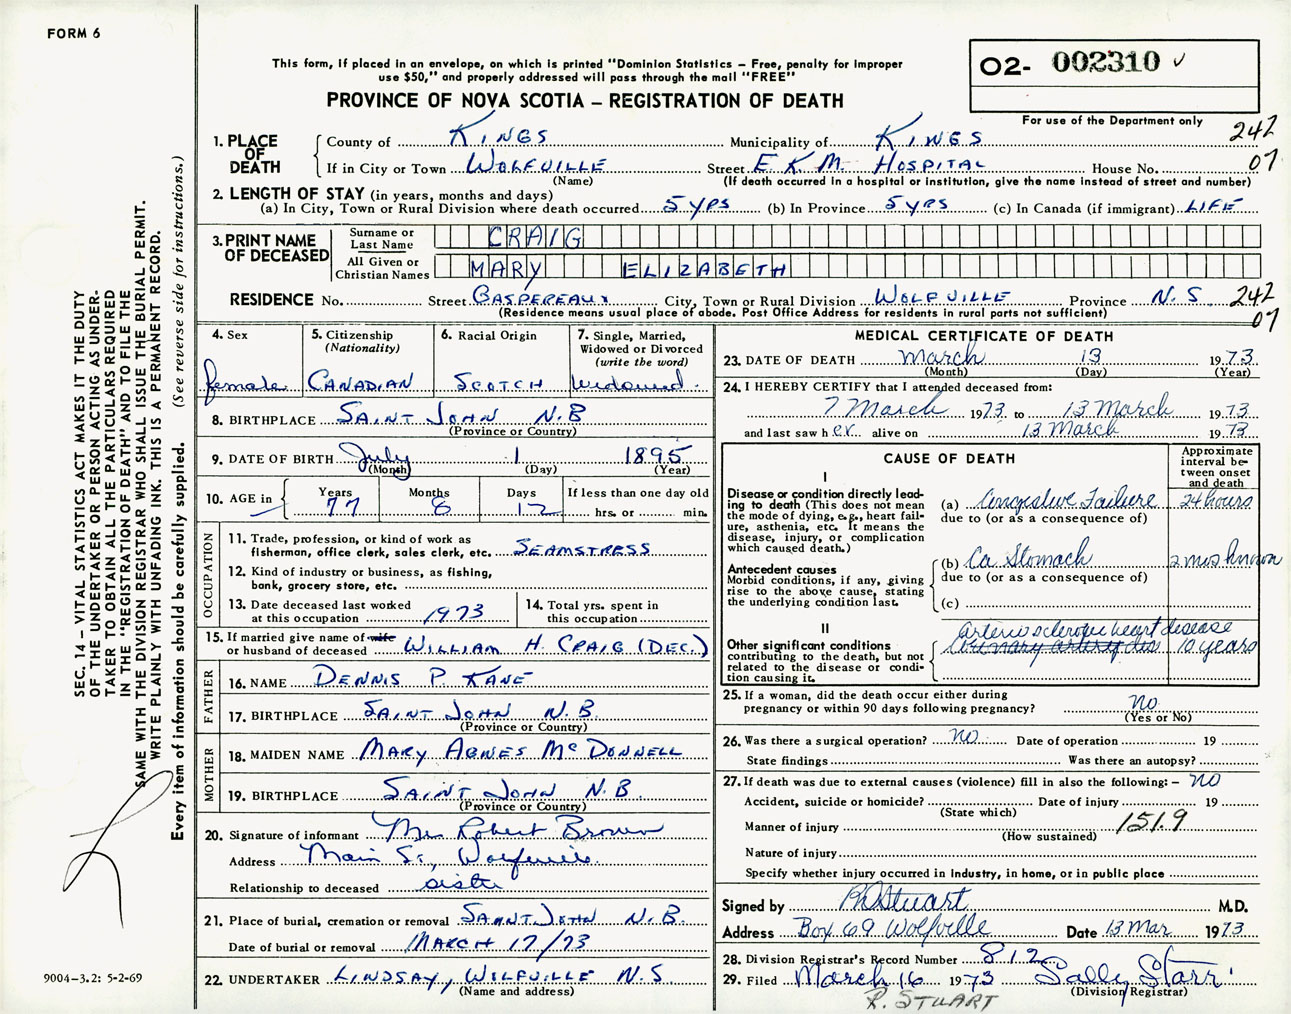 FORM 6
This form, if placed in an envelope, on which is printed "Dominion Statistics – Free, penalty for improper
use $50," and properly addressed will pass through the mail "FREE"
PROVINCE OF NOVA SCOTIA – REGISTRATION OF DEATH
O2- 002310 ✓
For use of the Department only
242
07
1. PLACE OF DEATH
County of KINGS Municipality of KINGS
If in City or Town WOLFVILLE Street E. K. M. HOSPITAL House No.
(Name) (If death occurred in a hospital or institution, give the name instead of street and number)
2. LENGTH OF STAY (in years, months and days)
(a) In City, Town or Rural Division where death occurred 5 YRS (b) In Province 5 YRS (c) In Canada (if immigrant) LIFE
3. PRINT NAME OF DECEASED
Surname or Last Name CRAIG
All Given or Christian Names MARY ELIZABETH
RESIDENCE No. Street GASPEREAUX City, Town or Rural Division WOLFVILLE Province N.S. 242
(Residence means usual place of abode. Post Office Address for residents in rural parts not sufficient) 07
4. Sex
female
5. Citizenship
(Nationality)
CANADIAN
6. Racial Origin
SCOTCH
7. Single, Married,
Widowed or Divorced
(write the word)
Widowed
8. BIRTHPLACE SAINT JOHN N.B
(Province or Country)
9. DATE OF BIRTH July 1 1895
(Month) (Day) (Year)
10. AGE in Years Months Days If less than one day old
77 8 12 hrs. or min.
OCCUPATION
11. Trade, profession, or kind of work as
fisherman, office clerk, sales clerk, etc. SEAMSTRESS
12. Kind of industry or business, as fishing,
bank, grocery store, etc.
13. Date deceased last worked
at this occupation 1973
14. Total yrs. spent in
this occupation
15. If married give name of wife
or husband of deceased WILLIAM H. CRAIG (DEC.)
FATHER
16. NAME DENNIS P. KANE
17. BIRTHPLACE SAINT JOHN N.B.
(Province or Country)
MOTHER
18. MAIDEN NAME MARY AGNES McDONNELL
19. BIRTHPLACE SAINT JOHN N.B.
(Province or Country)
20. Signature of informant Mrs Robert Brown
Address Main St., Wolfville
Relationship to deceased sister
21. Place of burial, cremation or removal SAINT JOHN N.B.
Date of burial or removal MARCH 17/73
22. UNDERTAKER LINDSAY, WOLFVILLE N.S
(Name and address)
MEDICAL CERTIFICATE OF DEATH
23. DATE OF DEATH March 13 1973
(Month) (Day) (Year)
24. I HEREBY CERTIFY that I attended deceased from:
7 March 1973 to 13 March 1973
and last saw her alive on 13 March 1973
CAUSE OF DEATH
Approximate interval between onset and death
I
Disease or condition directly leading to death (This does not mean
the mode of dying, e.g., heart failure, asthenia, etc. It means the
disease, injury, or complication
which caused death.)
(a) Congestive Failure 24 hours
due to (or as a consequence of)
Antecedent causes
Morbid conditions, if any, giving
rise to the above cause, stating
the underlying condition last.
(b) Ca Stomach 2 mos known
due to (or as a consequence of)
(c)
II
Other significant conditions
contributing to the death, but not
related to the disease or condition causing it.
Arteriosclerotic heart disease
Coronary artery dis 10 years
25. If a woman, did the death occur either during
pregnancy or within 90 days following pregnancy? no
(Yes or No)
26. Was there a surgical operation? no Date of operation 19
State findings Was there an autopsy?
27. If death was due to external causes (violence) fill in also the following: – no
Accident, suicide or homicide? Date of injury 19
(State which)
Manner of injury 151.9
(How sustained)
Nature of injury
Specify whether injury occurred in industry, in home, or in public place
Signed by R.D. Stuart M.D.
Address Box 69 Wolfville Date 13 Mar 1973
28. Division Registrar's Record Number 812
29. Filed March 16 1973 Sally Starr
(Division Registrar)
R. STUART
SEC. 14 – VITAL STATISTICS ACT MAKES IT THE DUTY
OF THE UNDERTAKER OR PERSON ACTING AS UNDER-
TAKER TO OBTAIN ALL THE PARTICULARS REQUIRED
IN THE "REGISTRATION OF DEATH" AND TO FILE THE
SAME WITH THE DIVISION REGISTRAR WHO SHALL ISSUE THE BURIAL PERMIT.
WRITE PLAINLY WITH UNFADING INK. THIS IS A PERMANENT RECORD.
Every item of information should be carefully supplied. (See reverse side for instructions.)
9004-3.2: 5-2-69